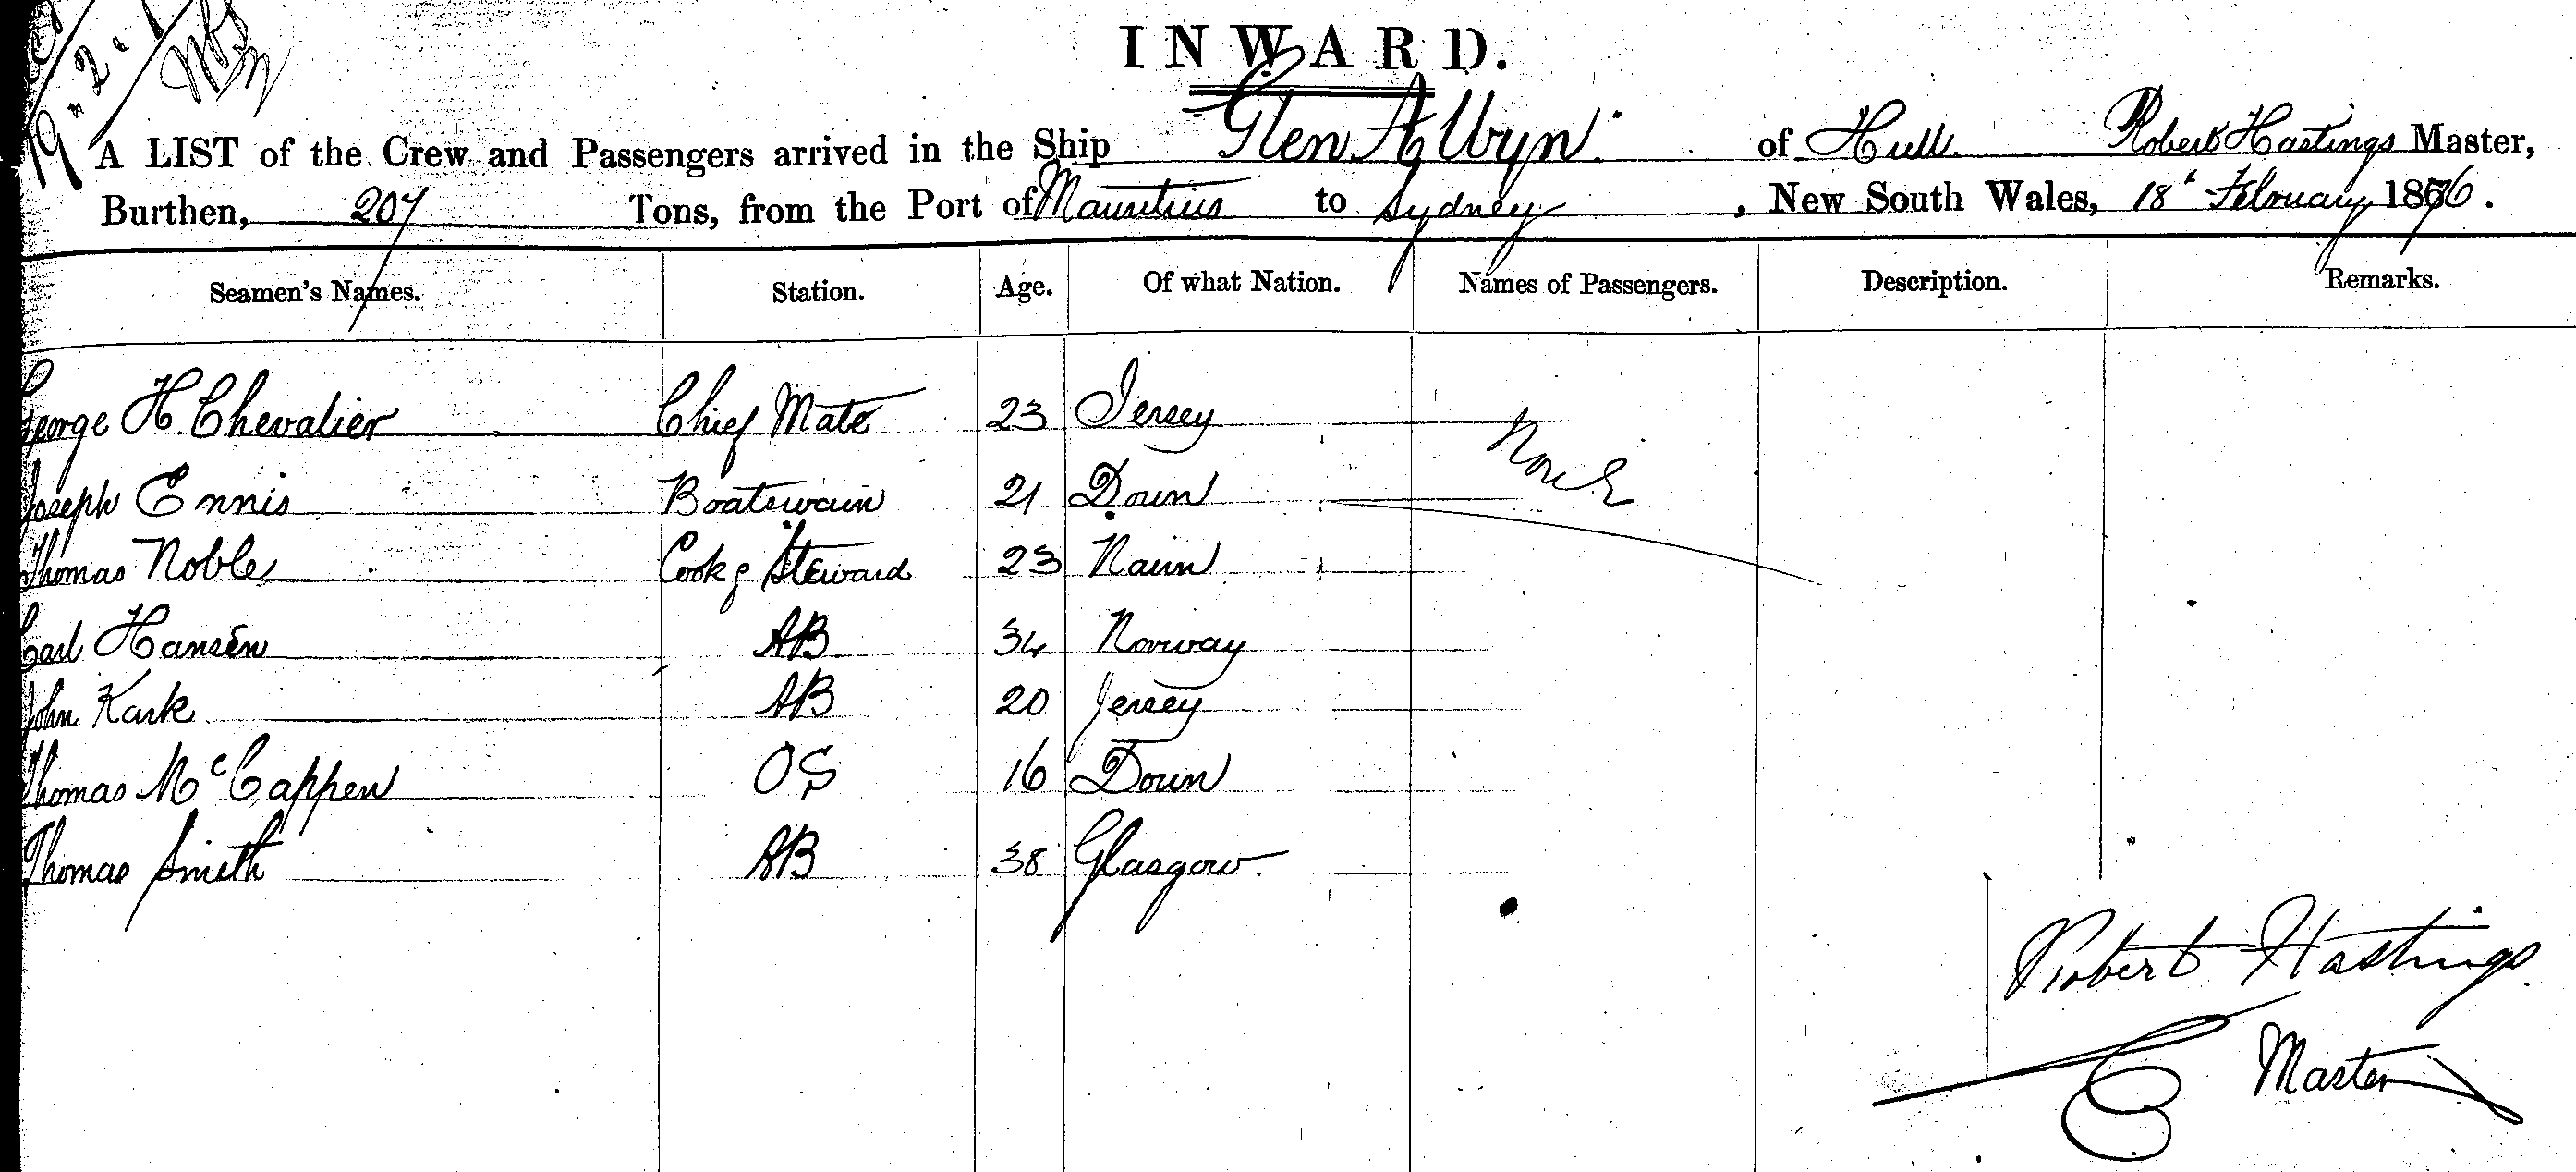 19.2.
INWARD.
A LIST of the Crew and Passengers arrived in the Ship Glen Alvyn of Hull. Robert Hastings Master,
Burthen, 207 Tons, from the Port of Mauritius to Sydney, New South Wales, 18th February 1876.
Seamen's Names. Station. Age. Of what Nation. Names of Passengers. Description. Remarks.
George H. Chevalier Chief Mate 23 Jersey None
Joseph Ennis Boatswain 21 Down
Thomas Noble Cook & Steward 23 Nairn
Carl Hansen AB 34 Norway
John Kark AB 20 Jersey
Thomas McCappen OS 16 Down
Thomas Smith AB 38 Glasgow.
Robert Hastings.
Master